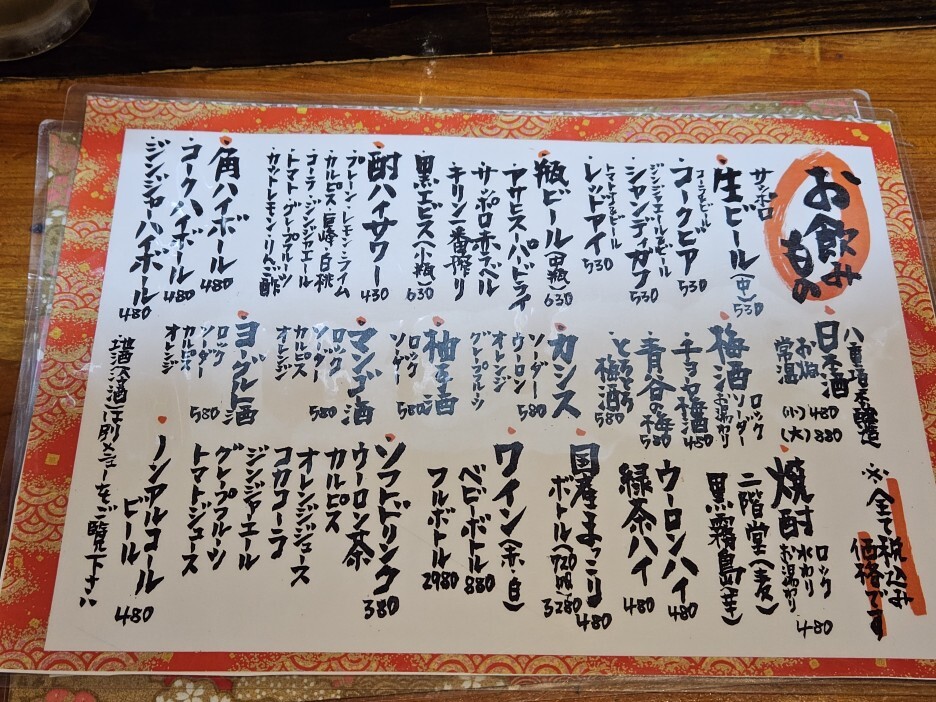 お飲み
もの
サッポロ
生ビール(中)530
コーラ&ビール
コークビア
530
ジンジャエール&ビール
シャンディガフ
530
トマト&ビール
レッドアイ
530
瓶ビール(中瓶)630
アサヒスーパードライ
サッポロ赤ラベル
キリン一番搾り
黒エビス(小瓶)630
酎ハイサワー
430
プレーン・レモン・ライム
カルピス・巨峰・白桃
コーラ・ジンジャエール
トマト・グレープフルーツ
カットレモン・りんご酢
角ハイボール
480
コークハイボール
480
ジンジャーハイボール
480
八重垣本醸造
日本酒
お燗
常温
(小)480
(大)880
梅酒
ロック
ソーダー
お湯わり
チョーヤ梅酒
480
青谷の梅
580
とろとろ
梅酒
580
カシス
580
ソーダー
ウーロン
オレンジ
グレープフルーツ
柚子酒
580
ロック
ソーダー
マンゴー酒
580
ロック
ソーダー
カルピス
オレンジ
ヨーグルト酒
580
ロック
ソーダー
カルピス
オレンジ
地酒、冷酒は別メニューをご覧下さい
※全て税込み
価格です
焼酎
ロック
水わり
お湯わり
480
二階堂(麦)
黒霧島(芋)
ウーロンハイ
480
緑茶ハイ
480
国産まっこり
480
ボトル(720ml)
3280
ワイン(赤・白)
ベビーボトル
880
フルボトル
2980
ソフトドリンク
380
ウーロン茶
カルピス
オレンジジュース
コカコーラ
ジンジャエール
グレープフルーツ
トマトジュース
ノンアルコール
ビール
480